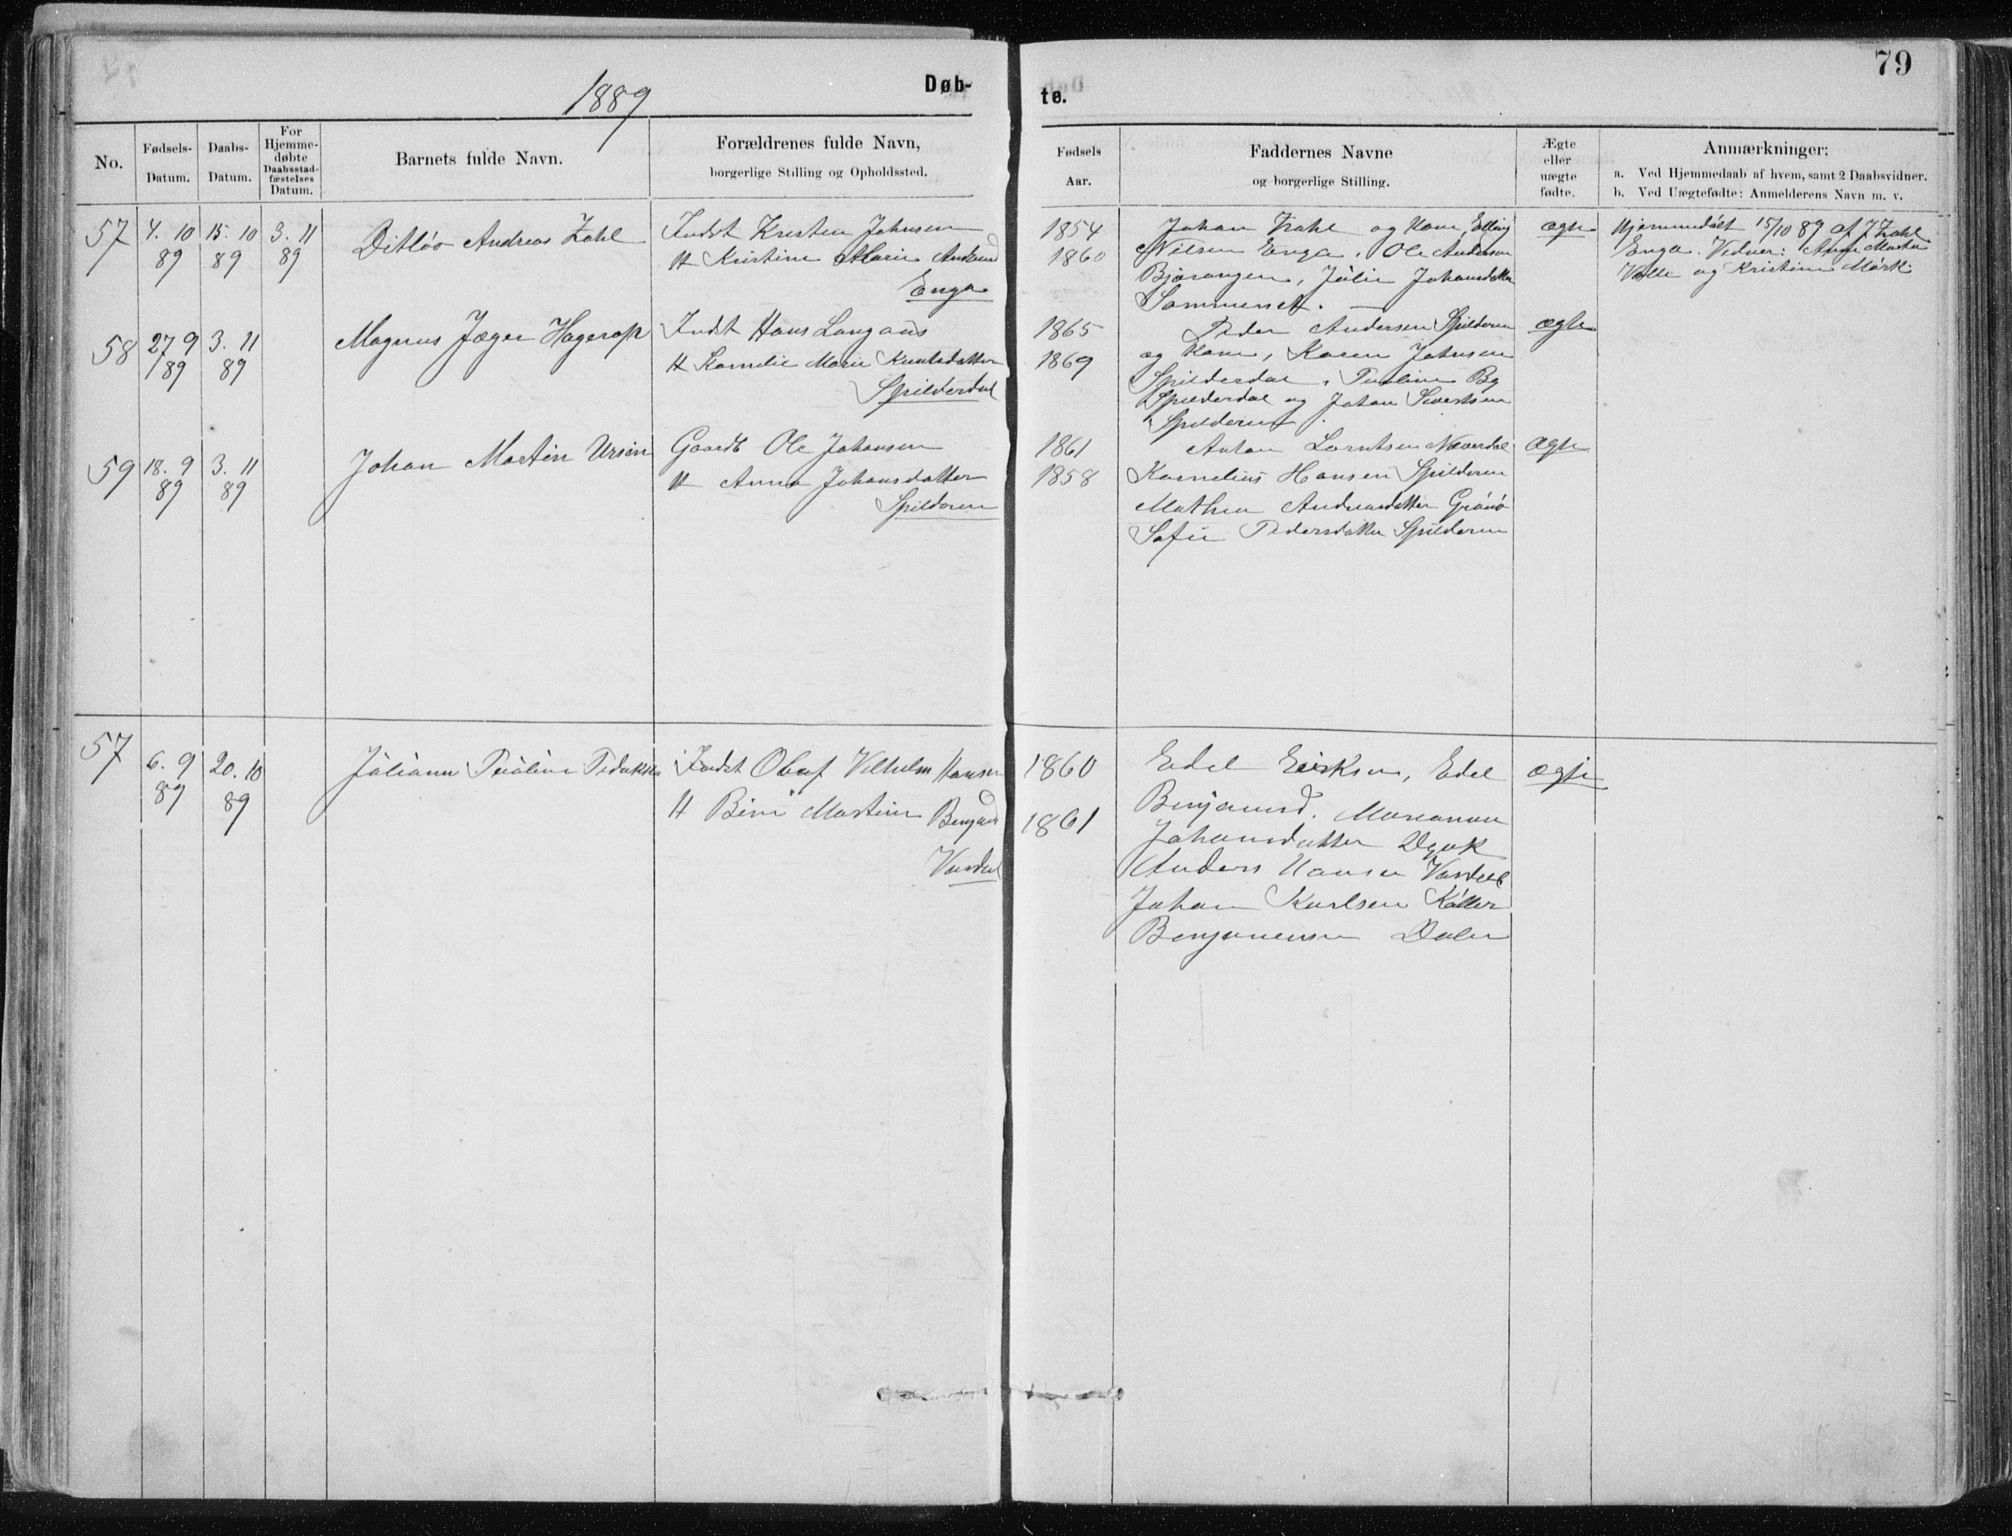 79
1889
Døb-
te.
No.
Fødsels-
Datum.
Daabs-
Datum.
For
Hjemme-
døbte
Daabsstad-
fæstelses
Datum.
Barnets fulde Navn.
Forældrenes fulde Navn,
borgerlige Stilling og Opholdssted.
Fødsels
Aar.
Faddernes Navne
og borgerlige Stilling.
Ægte
eller
uægte
fødte.
Anmærkninger:
a. Ved Hjemmedaab af hvem, samt 2 Daabsvidner.
b. Ved Uægtefødte: Anmelderens Navn m. v.
57
4. 10
89
15. 10
89
3. 11
89
Ditløv Andreas Zahl
Indst Kristen Johnsen
H Kristine Marie
Enga
1854
1860
Johan Zahl og Kone, Elling
Nilsen Enga, Ole Andersen
Bjærangen, Julie Johansdatter
Sommerset.
ægte
Hjemmedøbt 15/10 89 af J Zahl
Enga. Vidner: Anne Marta
Valle og Kristine Mørk
58
27 9
89
3. 11
89
Magnus Jæger Hagerop
Indst Hans Langaas
H Kornelie Marie Knutsdatter
Spilderdal
1865
1869
Peder Andersen Spilderen
og Kone, Karen Johnsen
Spilderdal,
Spilderdal og Johan Sivertsen
Spilderen.
ægte
59
18. 9
89
3. 11
89
Johan Martin Ursin
Gaardb Ole Johansen
H Anna Johansdatter
Spilderen
1861
1858
Anton Lorntsen Neverdal
Kornelius Hansen Spilderen
Mathea Andreasdatter Grønø
Sofie Pedersdatter Spilderen
ægte
57
6. 9
89
20. 10
89
Juliane
Indst Olaf Vilhelm Hansen
H Martine
Vasdal
1860
1861
Edel Eriksen, Edel
Benjamind. Marianna
Johansdatter
Anders Hansen Vasdal
Johan Karlsen
Benjaminsen
ægte